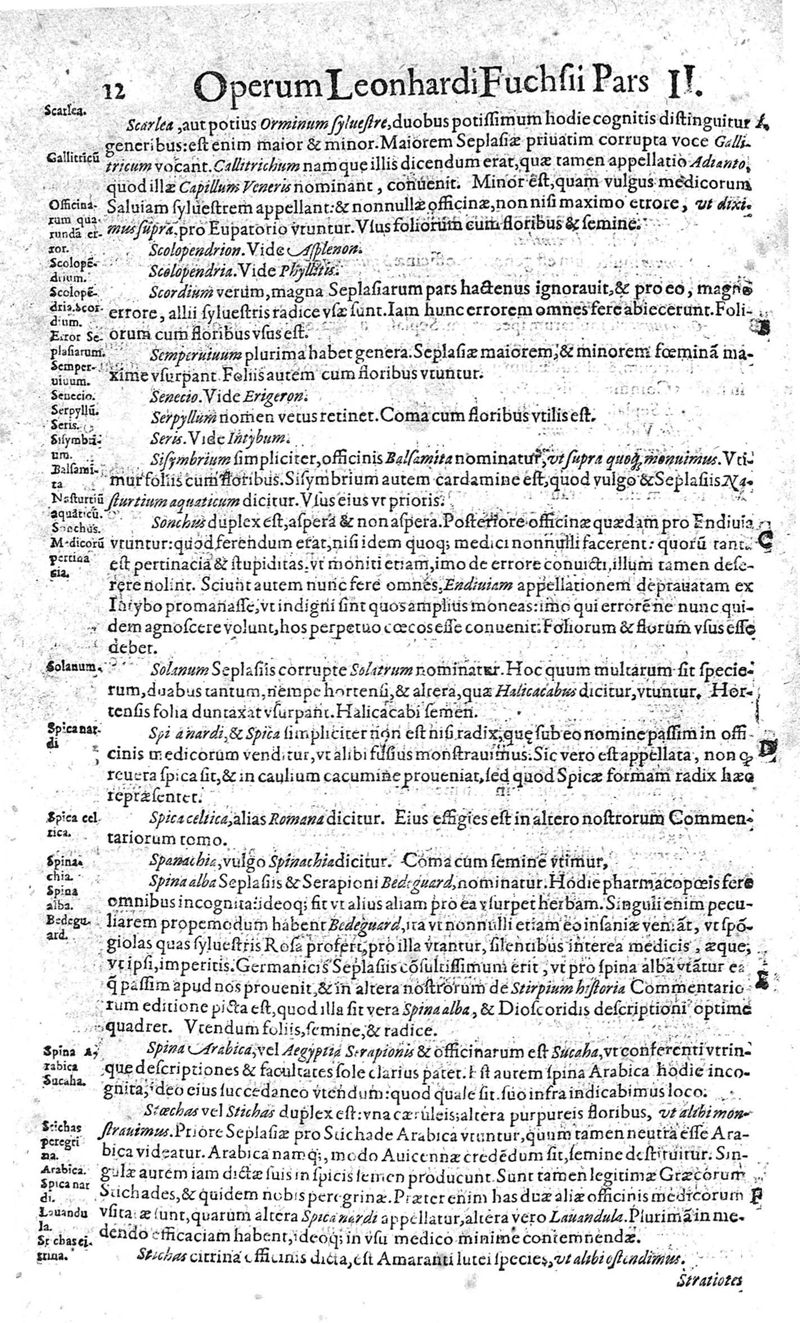 12 Operum Leonhardi Fuchsii Pars II.
Scarlea.
Scarlea, aut potius Orminum sylueſtre, duobus potiſſimum hodie cognitis diſtinguitur
generibus: eſt enim maior & minor. Maiorem Seplaſiæ priuatim corrupta voce Galli-
Gallitricū
tricum vocant. Callitrichum namque illis dicendum erat, quæ tamen appellatio Adianto,
quod illæ Capillum Veneris nominant, cōuenit. Minor eſt, quam vulgus medicorum
Officina-
rum qua-
rundā er-
ror.
Saluiam ſylueſtrem appellant: & nonnullæ officinæ, non niſi maximo errore, vt dixi-
mus ſupra, pro Eupatorio vtuntur. Vſus foliorum cum floribus & ſemine.
Scolopendrion. Vide Aſplenon.
Scolopē-
drium.
Scolopendria. Vide Phyllitis.
Scolopē-
dria. Scor
dium.
Scordium verum, magna Seplaſiarum pars hactenus ignorauit, & pro eo, magno
errore, allii ſylueſtris radice vſæ ſunt. Iam hunc errorem omnes fere abiecerunt. Foli-
Error Se-
plaſiarum.
orum cum floribus vſus eſt.
Semper-
uiuum.
Semperuiuum plurima habet genera. Seplaſiæ maiorem, & minorem fœminā ma-
xime vſurpant. Foliis autem cum floribus vtuntur.
Senecio.
Senecio. Vide Erigeron.
Serpyllū.
Serpyllum nomen vetus retinet. Coma cum floribus vtilis eſt.
Seris.
Seris. Vide Intybum.
Siſymbri-
um.
Balſami-
ta
Siſymbrium ſimpliciter, officinis Balſamita nominatur, vt ſupra quoq; monuimus. Vti-
mur foliis cum floribus. Siſymbrium autem cardamine eſt, quod vulgo & Seplaſiis Na-
Naſturtiū
aquaticū.
ſturtium aquaticum dicitur. Vſus eius vt prioris.
Sonchus.
Sonchus duplex eſt, aſpera & non aſpera. Poſteriore officinæ quædam pro Endiuia
Medicorū
pertina
cia.
vtuntur: quod ferendum erat, niſi idem quoq; medici nonnulli facerent: quorū tanta
C
eſt pertinacia & ſtupiditas, vt moniti etiam, imo de errore conuicti, illum tamen deſe-
rere nolint. Sciunt autem nunc fere omnes, Endiuiam appellationem deprauatam ex
Intybo promanaſſe, vt indigni ſint quos amplius moneas: imo qui errorē ne nunc qui-
dem agnoſcere volunt, hos perpetuo cœcos eſſe conuenit. Foliorum & florum vſus eſſe
debet.
Solanum.
Solanum Seplaſiis corrupte Solatrum nominatur. Hoc quum multarum ſit ſpecie-
rum, duabus tantum, nempe hortenſi, & altera, quæ Halicacabus dicitur, vtuntur. Hor-
tenſis folia duntaxat vſurpant. Halicacabi ſemen.
Spica nar-
di
Spica nardi, & Spica ſimpliciter non eſt niſi radix, quę ſub eo nomine paſſim in offi-
cinis medicorum venditur, vt alibi fuſius monſtrauimus. Sic vero eſt appellata, non q
D
reuera ſpica ſit, & in caulium cacumine proueniat, ſed quod Spicæ formam radix hæc
repræſentet.
Spica cel
tica.
Spica celtica, alias Romana dicitur. Eius effigies eſt in altero noſtrorum Commen-
tariorum tomo.
Spina-
chia.
Spanachia, vulgo Spinachia dicitur. Coma cum ſemine vtimur,
Spina
alba.
Spina alba Seplaſiis & Serapioni Bedeguard, nominatur. Hodie pharmacopœis fere
omnibus incognita: ideoq; fit vt alius aliam pro ea vſurpet herbam. Singuli enim pecu-
Bedegu-
ard.
liarem propemodum habent Bedeguard, ita vt nonnulli etiam eo inſaniæ veniāt, vt ſpō-
giolas quas ſylueſtris Roſa profert, pro illa vtantur, ſilentibus interea medicis, æque,
vt ipſi, imperitis. Germanicis Seplaſiis cōſultiſſimum erit, vt pro ſpina alba vtātur ea
E
q̄ paſſim apud nos prouenit, & in altera noſtrorum de Stirpium hiſtoria Commentario-
rum editione picta eſt, quod illa ſit vera Spina alba, & Dioſcoridis deſcriptioni optime
quadret. Vtendum foliis, ſemine, & radice.
Spina A-
rabica
Sucaha.
Spina Arabica, vel Aegyptia Serapionis & officinarum eſt Sucaha, vt conferenti vtrin-
que deſcriptiones & facultates ſole clarius patet. Eſt autem ſpina Arabica hodie inco-
gnita, ideo eius ſuccedaneo vtendum: quod quale ſit, ſuo infra indicabimus loco.
Stœchas vel Stichas duplex eſt: vna cæruleis; altera purpureis floribus, vt alibi mon-
Stichas
peregri
na.
ſtrauimus. Priore Seplaſiæ pro Stichade Arabica vtuntur, quum tamen neutra eſſe Ara-
bica videatur. Arabica namq;, modo Auicennæ credēdum ſit, ſemine deſtituitur. Sin-
Arabica.
gulæ autem iam dictæ ſuis in ſpicis ſemen producunt. Sunt tamen legitimæ Græcorum
Spica nar
di.
Stichades, & quidem nobis peregrinæ. Præter enim has duæ aliæ officinis medicorum
F
Lauandu
la.
vſitatæ ſunt, quarum altera Spica nardi appellatur, altera vero Lauandula. Plurimā in me-
dendo efficaciam habent, ideoq; in vſu medico minime contemnendæ.
Stichas ci-
trina.
Stichas citrina officinis dicta, eſt Amaranti lutei ſpecies, vt alibi oſtendimus.
Stratiotes